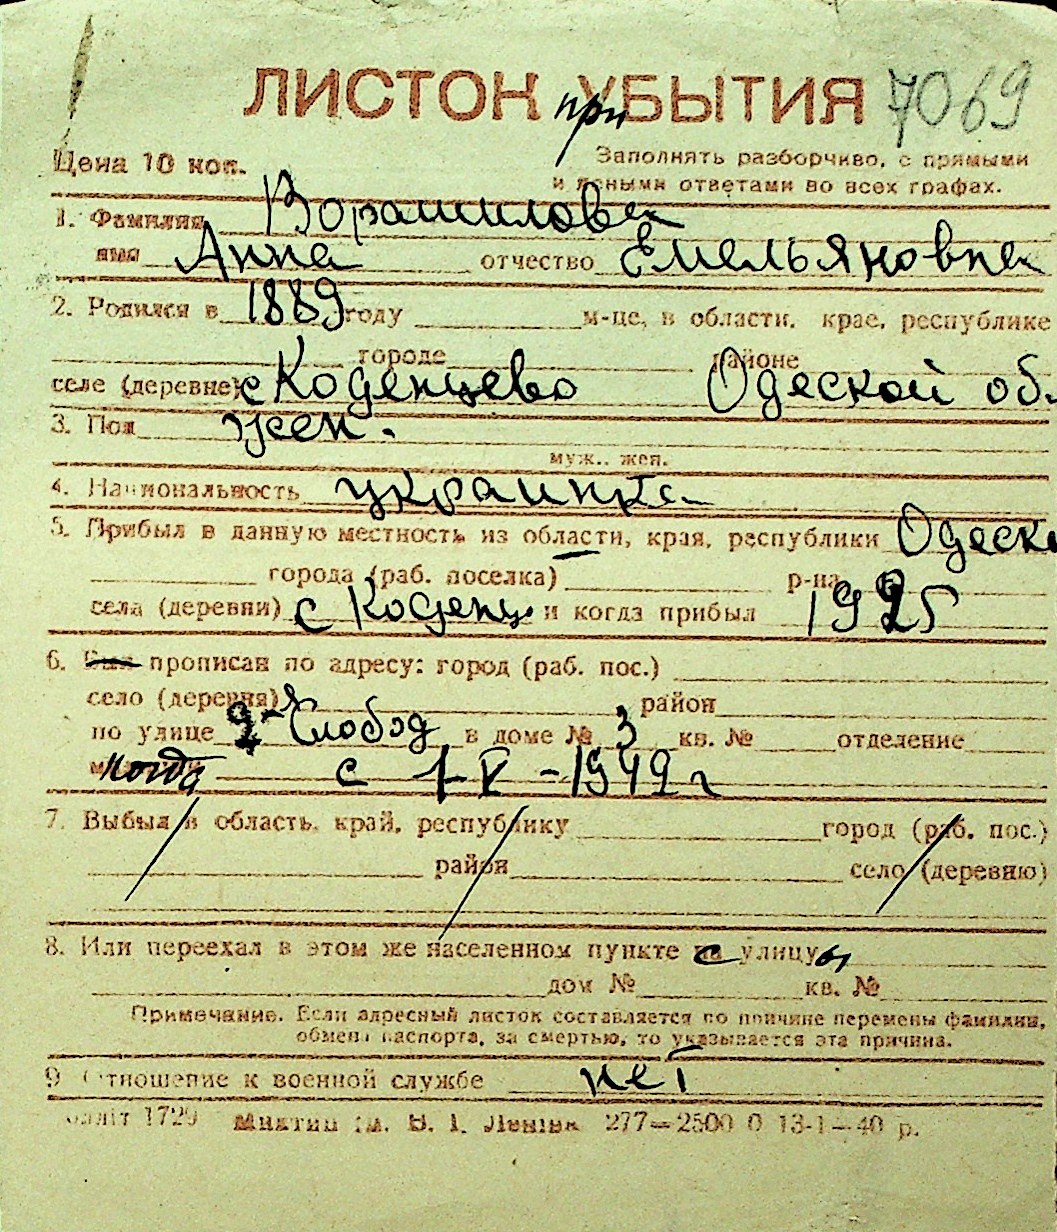 ЛИСТОК при УБЫТИЯ 7069
Цена 10 коп. Заполнять разборчиво, с прямыми
и ясными ответами во всех графах.
1. Фамилия Ворашилова
имя Анна отчество Емельяновна
2. Родился в 1889 году м-це, в области, крае, республике
городе районе
селе (деревне) с Коденцево Одеской об.
3. Пол жен.
муж., жен.
4. Национальность украинка
5. Прибыл в данную местность из области, края, республики Одеск
города (раб. поселка) р-на
села (деревни) с Коденц и когда прибыл 1925
6. Был прописан по адресу: город (раб. пос.)
село (деревня) район
по улице 2-я Слобод в доме № 3 кв. № отделение
когда с 1-V-1942 г
7. Выбыл в область, край, республику город (раб. пос.)
район село (деревню)
8. Или переехал в этом же населенном пункте с улицы
дом № кв. №
Примечание. Если адресный листок составляется по причине перемены фамилии,
обмена паспорта, за смертью, то указывается эта причина.
9 Отношение к военной службе нет
1729 ім. В. І. Леніна 277—2500 0 13-1—40 р.